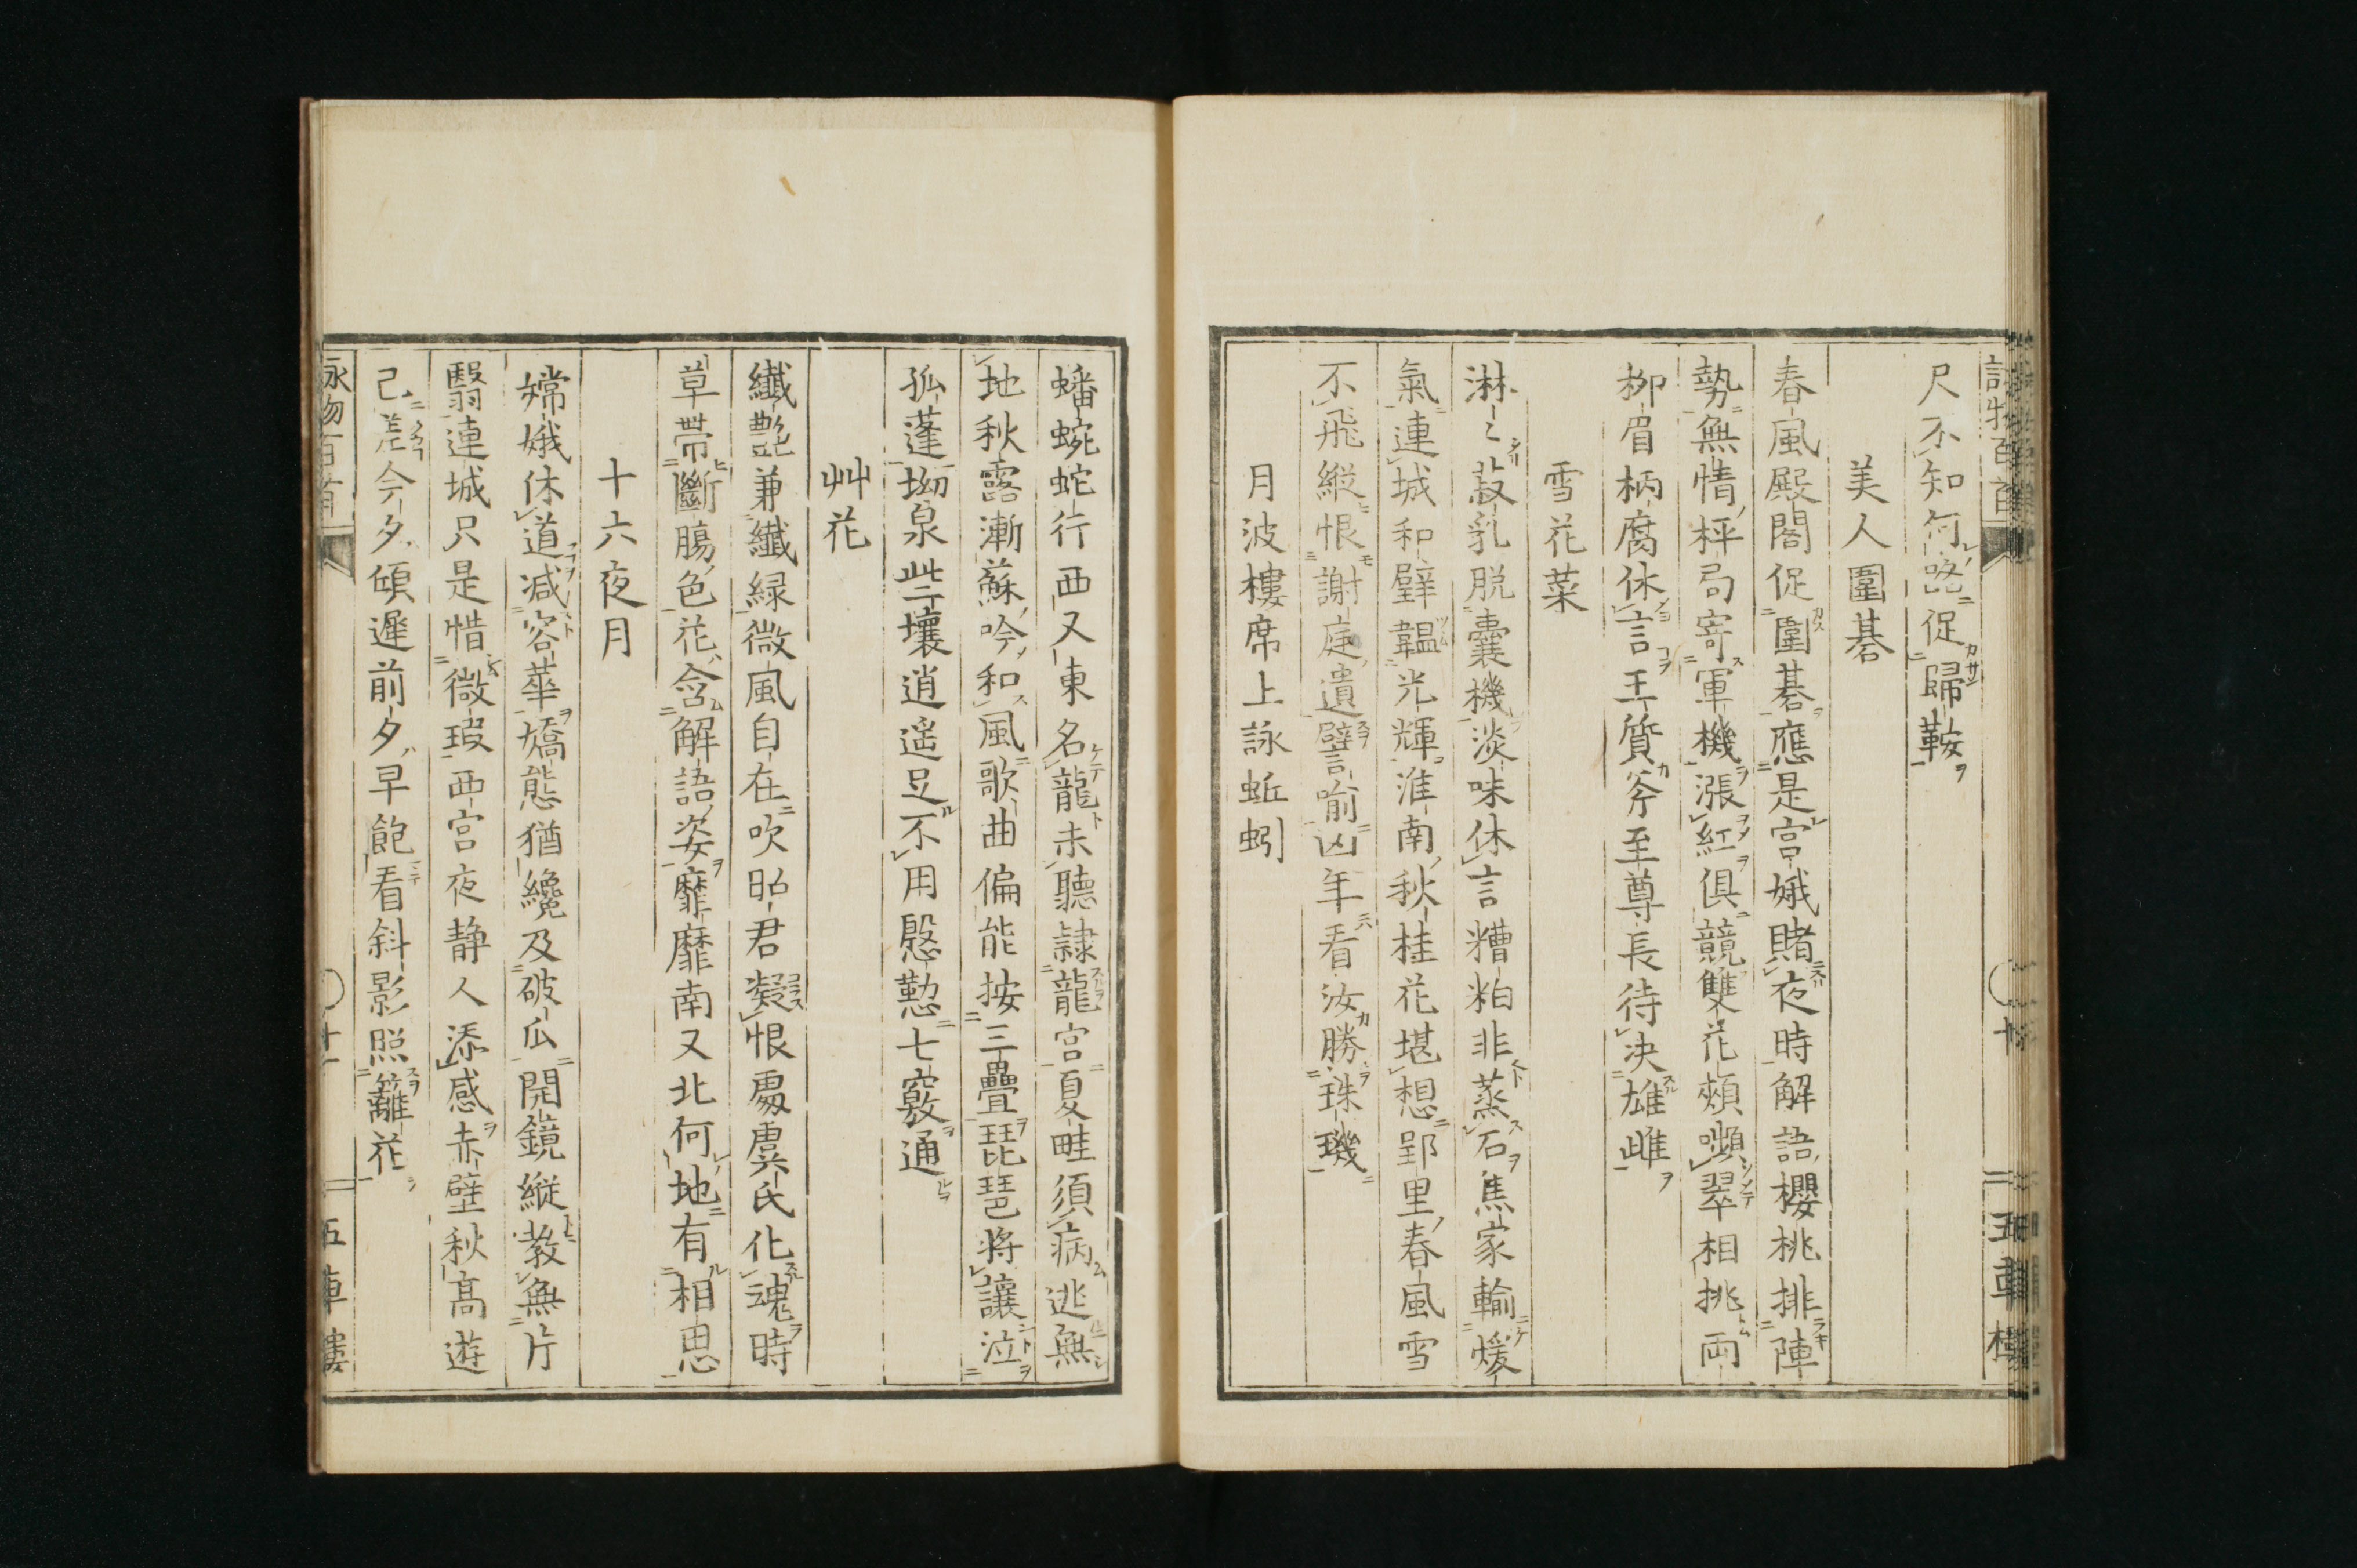 尺不知何路促歸鞍
美人圍碁
春風殿閣促圍碁應是宮娥賭夜時解語櫻桃排陣
勢無情枰局寄軍機漲紅俱競雙花頰嚬翠相挑兩
柳眉柄腐休言王質斧至尊長待決雄雌
雪花菜
淋〻菽乳脱囊機淡味休言糟粕非蒸石焦家輸煖
氣連城和璧韞光輝淮南秋桂花堪想郢里春風雪
不飛縦恨謝庭遺譬喻凶年看汝勝珠璣
月波樓席上詠蚯蚓
蟠蜿蛇行西又東名龍未聽隷龍宮夏畦須病逃無
地秋露漸蘇吟和風歌曲偏能按三疊琵琶將讓泣
孤蓬坳泉些壤逍遥足不用慇懃七竅通
艸花
纖艶兼纖緑微風自在吹昭君凝恨處虞氏化魂時
草帶斷腸色花含解語姿靡靡南又北何地有相思
十六夜月
嫦娥休道減容華嬌態猶纔及破瓜開鏡縦教無片
翳連城只是惜微瑕西宮夜静人添感赤壁秋高遊
已差今夕傾遲前夕早飽看斜影照籬花
詠物百首
十一
五車樓